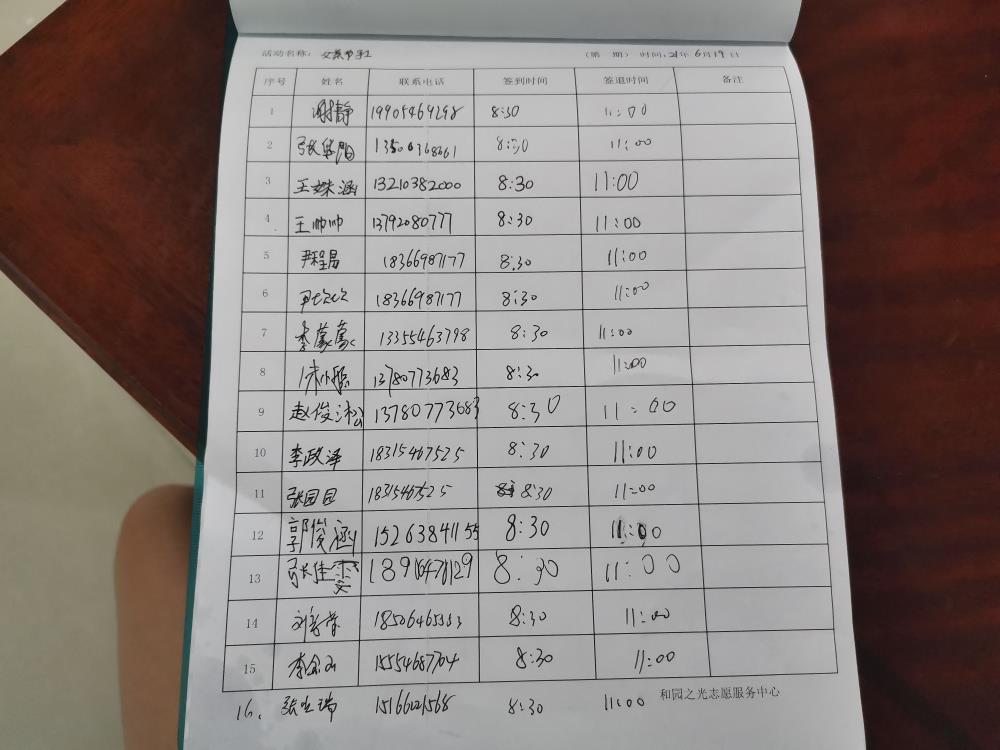 活动名称: （第 期） 时间: 21年 6月19日
序号 姓名 联系电话 签到时间 签退时间 备注
1 谢静 19905469298 8:30 11:00
2 8:30 11:00
3 王姝涵 13210382000 8:30 11:00
4 王帅帅 13792080777 8:30 11:00
5 尹程昌 18366987177 8:30 11:00
6 18366987177 8:30 11:00
7 李蒙蒙 13355463798 8:30 11:00
8 13780773683 8:30 11:00
9 赵俊淞 13780773683 8:30 11:00
10 李政泽 18315467525 8:30 11:00
11 张园园 18315467525 8:30 11:00
12 郭俊涵 15263841155 8:30 11:00
13 张佳雯 8:30 11:00
14 8:30 11:00
15 15554687704 8:30 11:00
和园之光志愿服务中心
16. 8:30 11:00